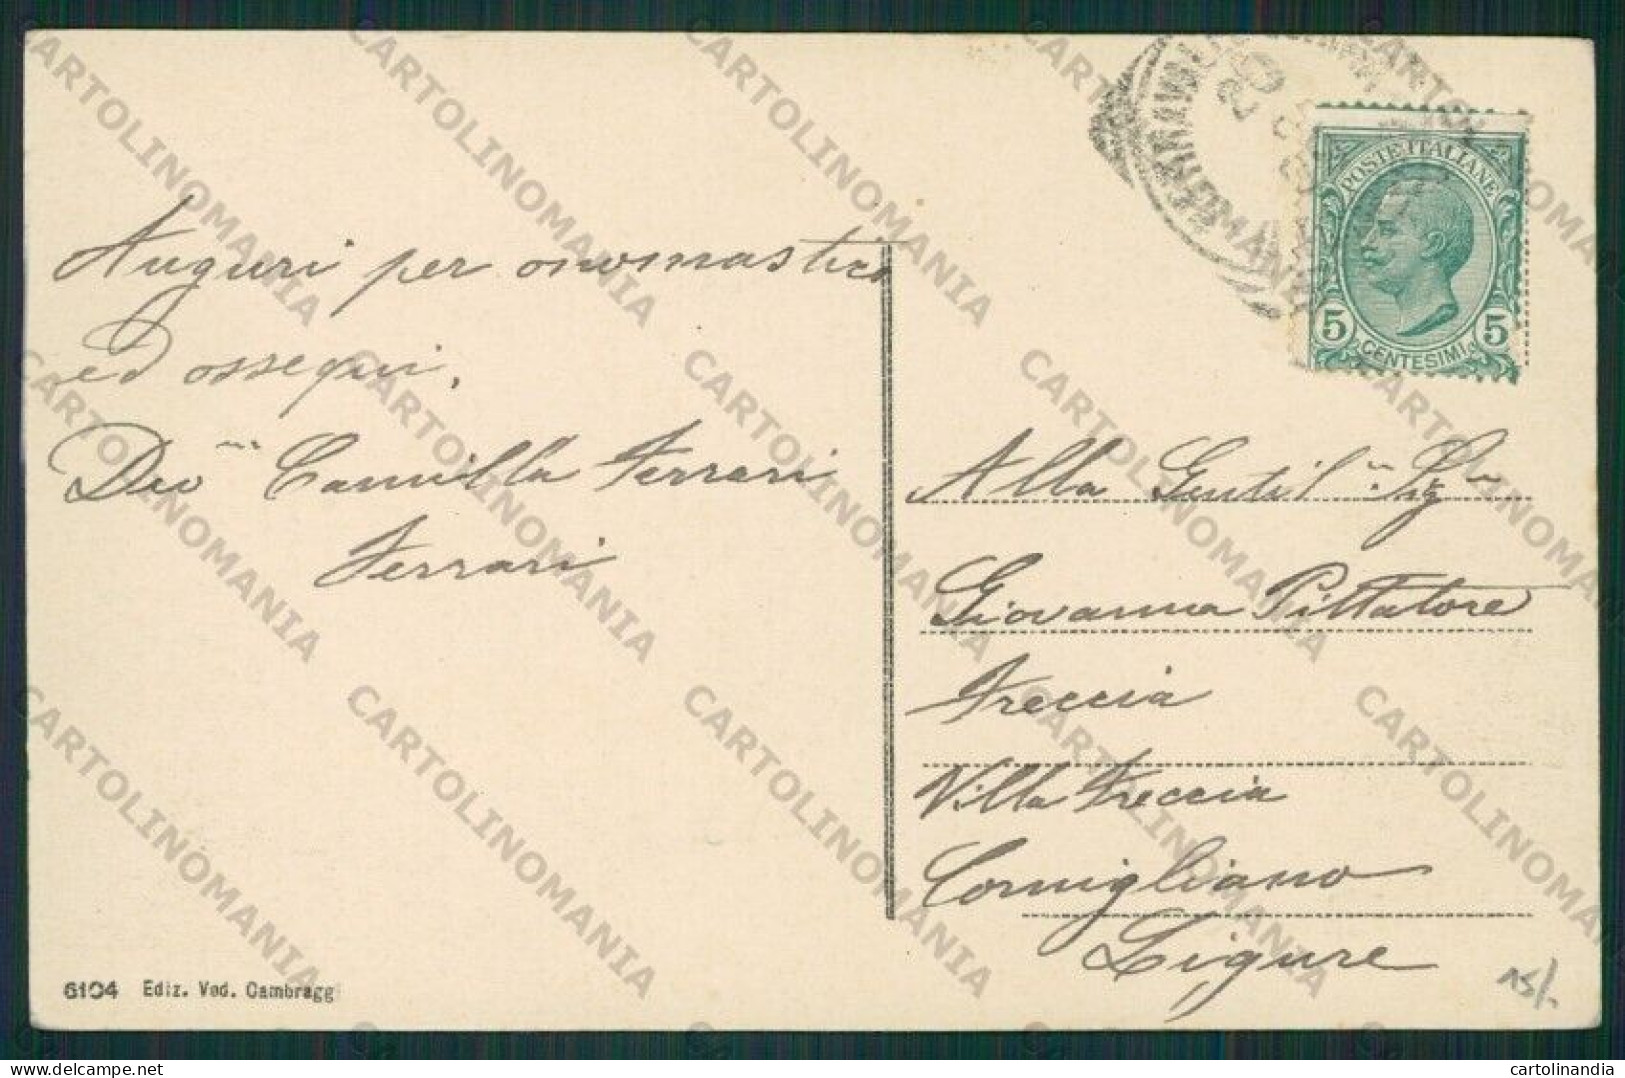 Auguri per onomastico
ed ossequi.
Dev.ma Camilla Ferrari
Ferrari
6104 Ediz. Ved. Cambraggi
POSTE ITALIANE
5 CENTESIMI 5
Alla Gentil.ma Sig.ra
Giovanna Pittatore
Freccia
Villa Freccia
Cornigliano
Ligure
15/-
CARTOLINOMANIA
cartolinandia